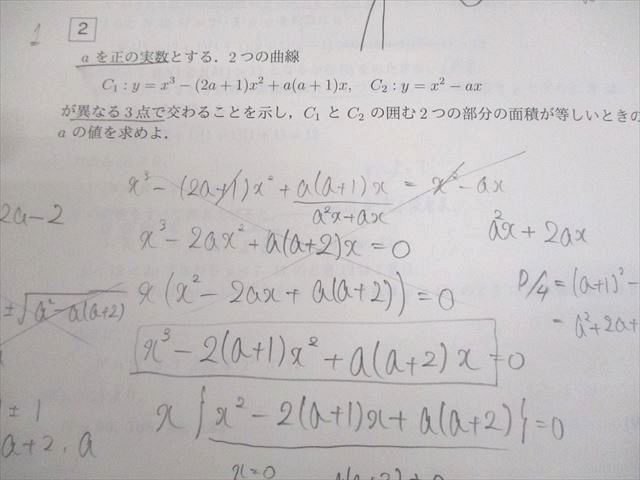 1
2
a を正の実数とする.2つの曲線
C₁ : y = x³ − (2a + 1)x² + a(a + 1)x, C₂ : y = x² − ax
が異なる3点で交わることを示し,C₁ と C₂ の囲む2つの部分の面積が等しいときの
a の値を求めよ.
x³ − (2a+1)x² + a(a+1)x = x² − ax
a²x + ax
2a−2
x³ − 2ax² + a(a+2)x = 0
a²x + 2ax
x(x² − 2ax + a(a+2)) = 0
± √a² − a(a+2)
D/4 = (a+1)² −
= a² + 2a +
x³ − 2(a+1)x² + a(a+2)x = 0
± 1
a+2, a
x{x² − 2(a+1)x + a(a+2)} = 0
x=0